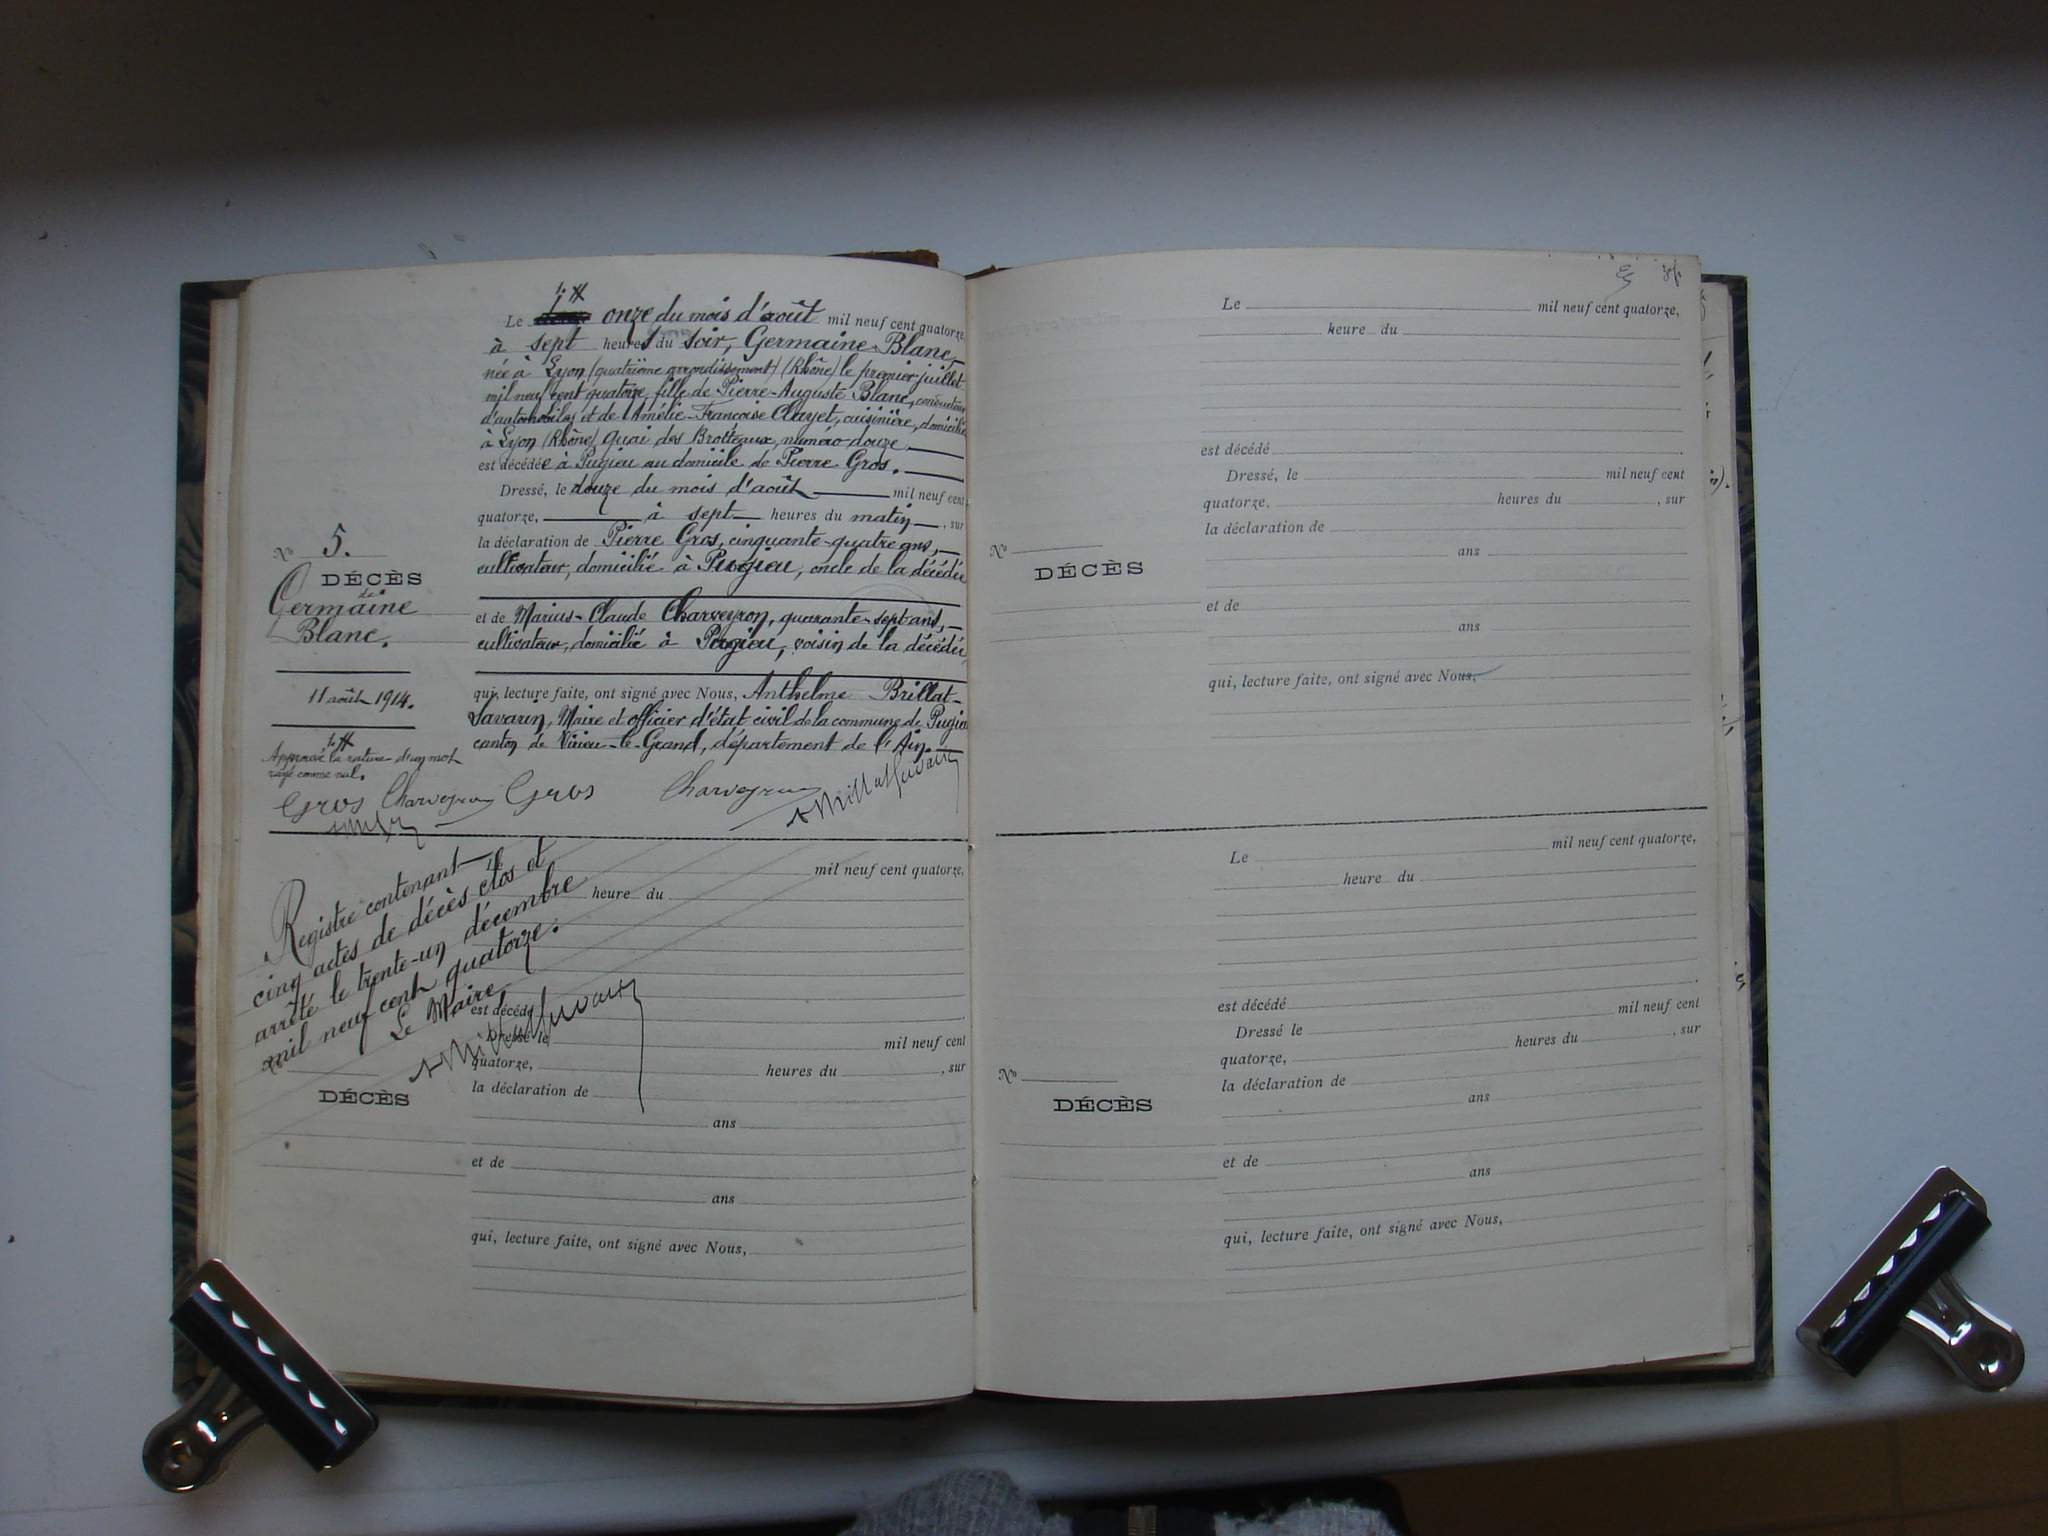 Le onze du mois d'août mil neuf cent quatorze,
à sept heures du soir, Germaine Blanc,
née à Lyon (quatrième arrondissement) (Rhône) le premier juillet
mil neuf cent quatorze, fille de Pierre-Auguste Blanc, conducteur
d'automobiles et de Amélie-Françoise Clayet, cuisinière, domiciliés
à Lyon (Rhône) quai des Brotteaux, numéro douze,
est décédée à Pugieu au domicile de Pierre Gros.
Dressé, le douze du mois d'août mil neuf cent
quatorze, à sept heures du matin, sur
la déclaration de Pierre Gros, cinquante-quatre ans,
cultivateur, domicilié à Pugieu, oncle de la décédée
et de Marius-Claude Charveyron, quarante-sept ans,
cultivateur, domicilié à Pugieu, voisin de la décédée
qui, lecture faite, ont signé avec Nous, Anthelme Brillat-
Savarin, Maire et officier d'état civil de la commune de Pugieu
canton de Virieu-le-Grand, département de l'Ain.
No 5.
DÉCÈS
de
Germaine
Blanc.
11 août 1914.
Approuvé la rature d'un mot
rayé comme nul.
Gros Charveyron Gros Charveyron
ABrillatSavarin
Registre contenant
cinq actes de décès clos et
arrêté le trente-un décembre
mil neuf cent quatorze.
Le Maire
ABrillatSavarin
Le mil neuf cent quatorze,
heure du
est décédé
Dressé le mil neuf cent
quatorze, heures du , sur
la déclaration de
ans
et de
ans
qui, lecture faite, ont signé avec Nous,
No
DÉCÈS
Le mil neuf cent quatorze,
heure du
est décédé
Dressé, le mil neuf cent
quatorze, heures du , sur
la déclaration de
ans
et de
ans
qui, lecture faite, ont signé avec Nous,
No
DÉCÈS
Le mil neuf cent quatorze,
heure du
est décédé
Dressé le mil neuf cent
quatorze, heures du , sur
la déclaration de
ans
et de
ans
qui, lecture faite, ont signé avec Nous,
No
DÉCÈS